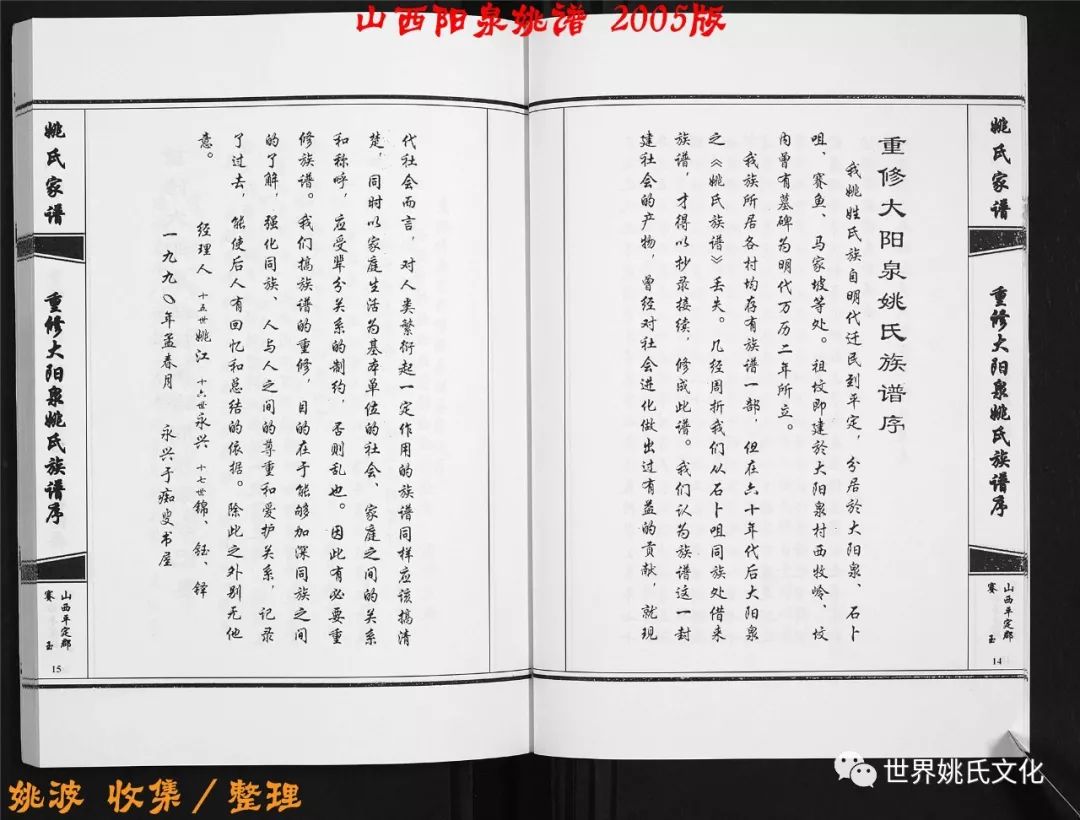 山西阳泉姚谱 2005版
姚氏家谱
重修大阳泉姚氏族谱序
山西平定郡
赛玉
14
重修大阳泉姚氏族谱序
我姚姓氏族自明代迁民到平定，分居於大阳泉、石卜
咀、赛鱼、马家坡等处。祖坟即建於大阳泉村西牧岭、坟
内曾有墓碑为明代万历二年所立。
我族所居各村均存有族谱一部，但在六十年代后大阳泉
之《姚氏族谱》丢失。几经周折我们从石卜咀同族处借来
族谱，才得以抄录接续，修成此谱。我们认为族谱这一封
建社会的产物，曾经对社会进化做出过有益的贡献，就现
代社会而言，对人类繁衍起一定作用的族谱同样应该搞清
楚，同时以家庭生活为基本单位的社会、家庭之间的关系
和称呼，应受辈分关系的制约，否则乱也。因此有必要重
修族谱。我们搞族谱的重修，目的在于能够加深同族之间
的了解，强化同族、人与人之间的尊重和爱护关系，记录
了过去，能使后人有回忆和总结的依据。除此之外别无他
意。
经理人 十五世姚江 十六世永兴 十七世锦、钰、铎
一九九〇年孟春月 永兴于痴叟书屋
姚氏家谱
重修大阳泉姚氏族谱序
山西平定郡
赛玉
15
姚波 收集/整理
世界姚氏文化